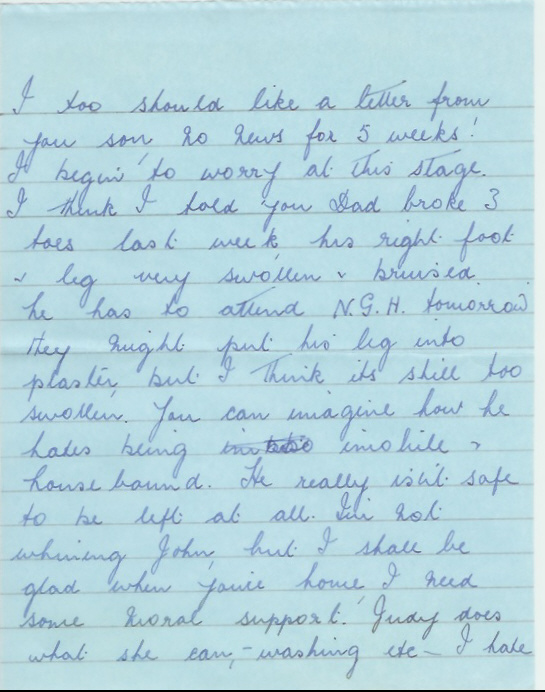 I too should like a letter from
you son no news for 5 weeks!
I begin to worry at this stage.
I think I told you Dad broke 3
toes last week his right foot
& leg very swollen & bruised.
he has to attend N.G.H. tomorrow
they might put his leg into
plaster, but I think its still too
swollen. You can imagine how he
hates being imobile &
house bound. He really isn't safe
to be left at all. I'm not
whining John, but I shall be
glad when you're home I need
some moral support! Judy does
what she can, - washing etc - I hate